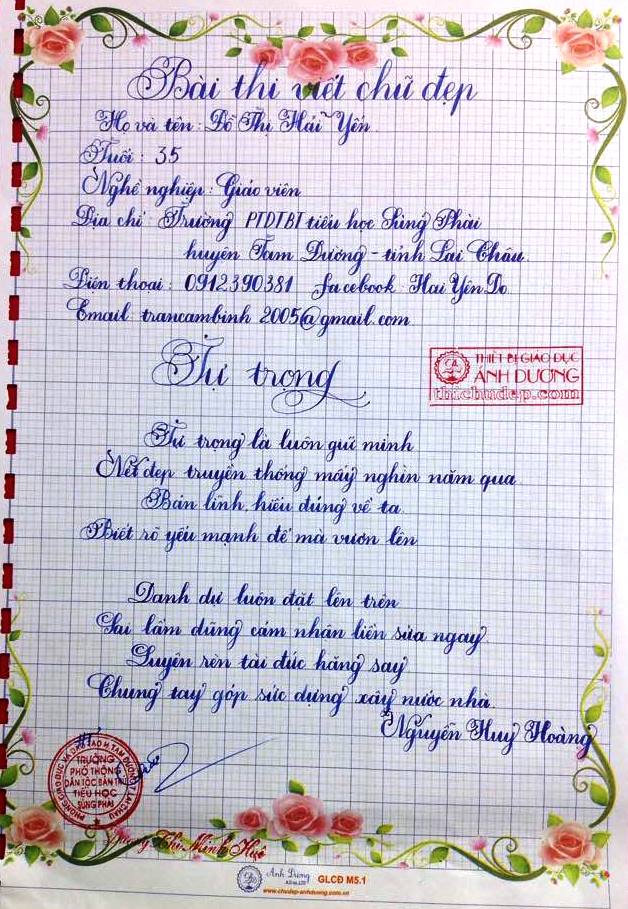 Bài thi viết chữ đẹp
Họ và tên: Đỗ Thị Hải Yến
Tuổi: 35
Nghề nghiệp: Giáo viên
Địa chỉ: Trường PTDTBT tiểu học Sùng Phài
huyện Tam Đường - tỉnh Lai Châu
Điện thoại: 0912390381 facebook: Hai Yến Do
Email trancambinh2005@gmail.com
THIẾT BỊ GIÁO DỤC
ÁNH DƯƠNG
thichudep.com
Tự trọng
Tự trọng là luôn giữ mình
Nét đẹp truyền thống mấy nghìn năm qua
Bản lĩnh, hiểu đúng về ta
Biết rõ yếu mạnh để mà vươn lên
Danh dự luôn đặt lên trên
Sai lầm dũng cảm nhận liền sửa ngay
Luyện rèn tài đức hăng say
Chung tay góp sức dựng xây nước nhà.
Nguyễn Huy Hoàng
PHÒNG GIÁO DỤC VÀ ĐÀO TẠO H. TAM ĐƯỜNG T. LAI CHÂU
TRƯỜNG
PHỔ THÔNG
DÂN TỘC BÁN TRÚ
TIỂU HỌC
SÙNG PHÀI
Thị Minh Huệ
Ánh Dương
GLCĐ M5.1
www.chudep-anhduong.com.vn